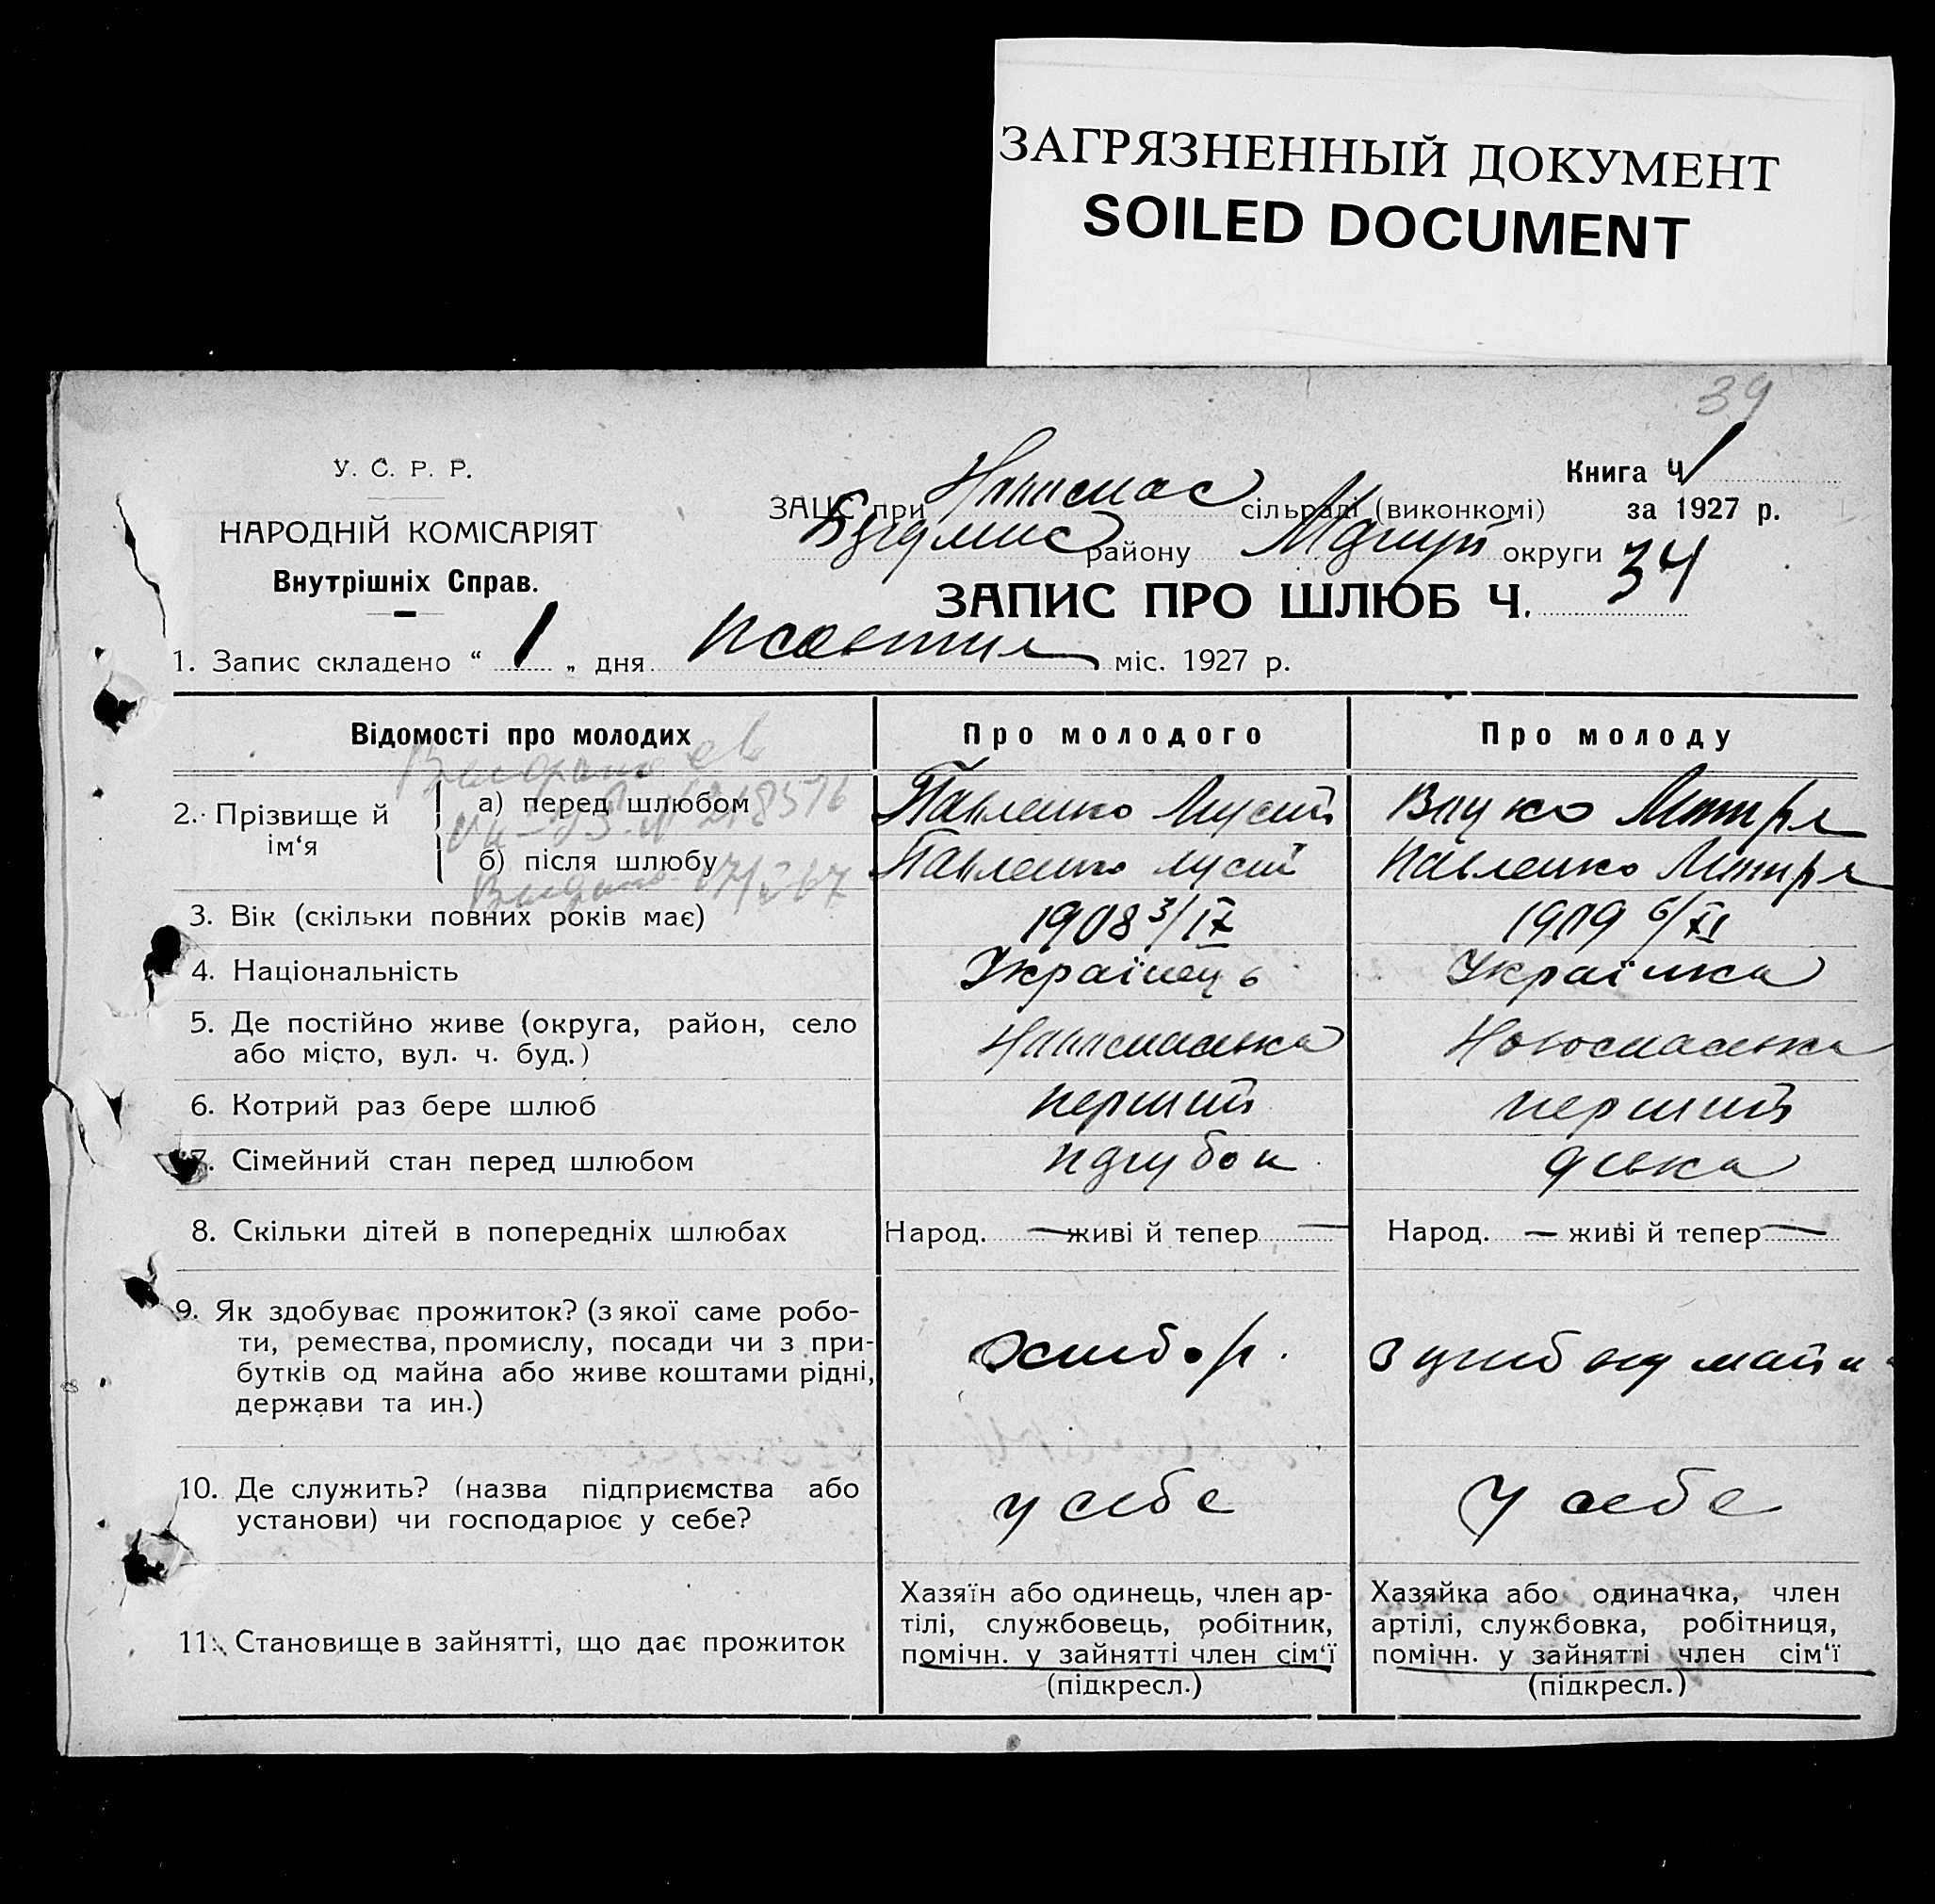 ЗАГРЯЗНЕННЫЙ ДОКУМЕНТ
SOILED DOCUMENT
39
У. С. Р. Р.
НАРОДНІЙ КОМІСАРІЯТ
Внутрішніх Справ.
Книга Ч 1
ЗАЦС при сільраді (виконкомі) за 1927 р.
району округи
ЗАПИС ПРО ШЛЮБ Ч. 34
1. Запис складено “ 1 „ дня жовтня міс. 1927 р.
Відомості про молодих Про молодого Про молоду
2. Прізвище й ім‘я
а) перед шлюбом Павленко Мусій Вацко Мотря
б) після шлюбу Павленко Мусій Павленко Мотря
3. Вік (скільки повних років має) 1908 3/IX 1909 6/XI
4. Національність Українець Українка
5. Де постійно живе (округа, район, село
або місто, вул. ч. буд.)
6. Котрий раз бере шлюб перший перший
7. Сімейний стан перед шлюбом парубок дівка
8. Скільки дітей в попередніх шлюбах Народ. — живі й тепер — Народ. — живі й тепер —
9. Як здобуває прожиток? (з якої саме робо-
ти, ремества, промислу, посади чи з при-
бутків од майна або живе коштами рідні,
держави та ин.)
хлібор.
10. Де служить? (назва підприємства або
установи) чи господарює у себе?
у себе у себе
11. Становище в зайнятті, що дає прожиток
Хазяїн або одинець, член ар-
тілі, службовець, робітник,
помічн. у зайнятті член сім‘ї
(підкресл.)
Хазяйка або одиначка, член
артілі, службовка, робітниця,
помічн. у зайнятті член сім‘ї
(підкресл.)